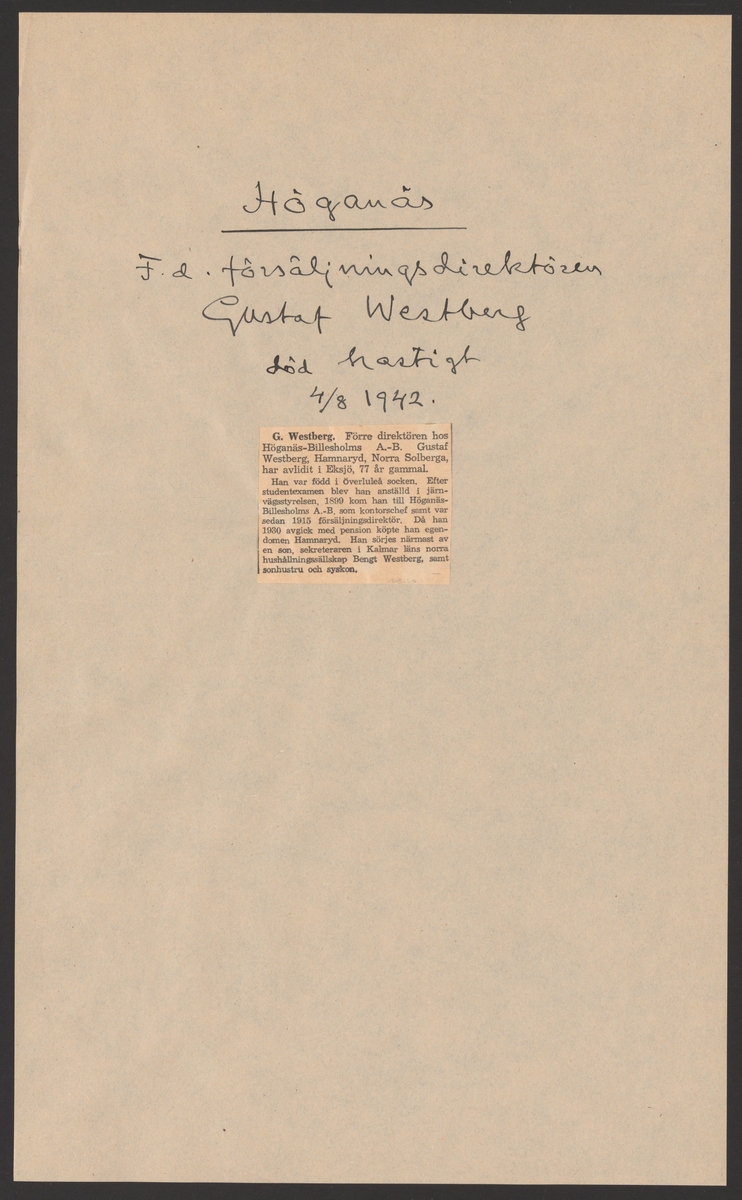 Höganäs
F.d. försäljningsdirektören
Gustaf Westberg
död hastigt
4/8 1942.
G. Westberg. Förre direktören hos
Höganäs-Billesholms A.-B. Gustaf
Westberg, Hamnaryd, Norra Solberga,
har avlidit i Eksjö, 77 år gammal.
Han var född i Överluleå socken. Efter
studentexamen blev han anställd i järn-
vägsstyrelsen, 1899 kom han till Höganäs-
Billesholms A.-B. som kontorschef samt var
sedan 1915 försäljningsdirektör. Då han
1930 avgick med pension köpte han egen-
domen Hamnaryd. Han sörjes närmast av
en son, sekreteraren i Kalmar läns norra
hushållningssällskap Bengt Westberg, samt
sonhustru och syskon.